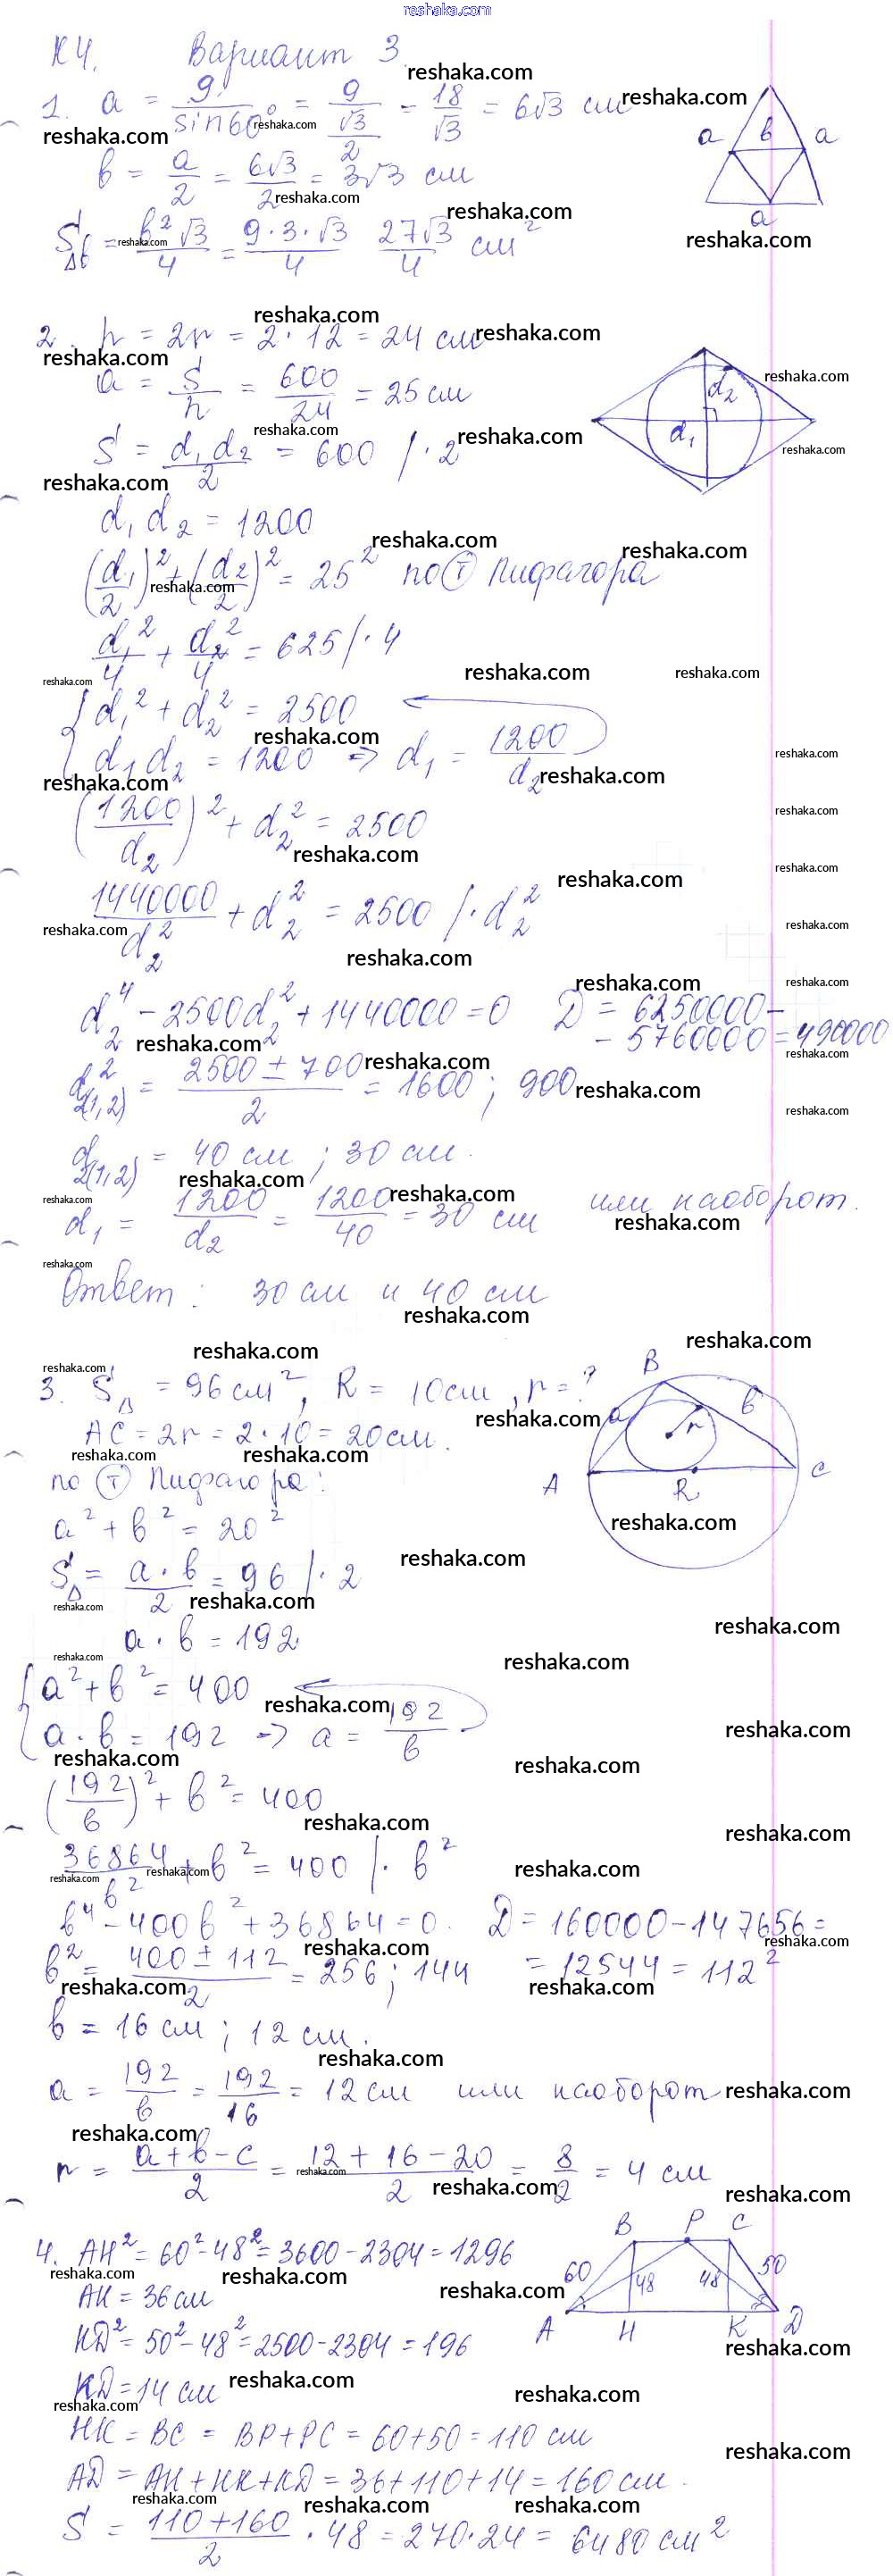 reshaka.com
К 4. Вариант 3.
1. a = 9/sin60° = 9/(√3/2) = 18/√3 = 6√3 см
b = a/2 = 6√3/2 = 3√3 см
S△b = b²√3/4 = 9·3·√3/4 27√3/4 см²
a b a
a
2. h = 2r = 2·12 = 24 см
a = S/h = 600/24 = 25 см
S = d₁d₂/2 = 600 /·2
d₂
d₁
d₁d₂ = 1200
(d₁/2)² + (d₂/2)² = 25² по Ⓣ Пифагора
d₁²/4 + d₂²/4 = 625 /·4
{ d₁² + d₂² = 2500
d₁d₂ = 1200 => d₁ = 1200/d₂
(1200/d₂)² + d₂² = 2500
1440000/d₂² + d₂² = 2500 /·d₂²
d₂⁴ - 2500d₂² + 1440000 = 0 D = 6250000 -
- 5760000 = 490000
d²₂(1,2) = (2500 ± 700)/2 = 1600; 900
d₂(1,2) = 40 см; 30 см.
d₁ = 1200/d₂ = 1200/40 = 30 см или наоборот.
Ответ: 30 см и 40 см
3. S△ = 96 см², R = 10 см, r = ?
AC = 2r = 2·10 = 20 см.
по Ⓣ Пифагора:
B
a b
r
A R C
a² + b² = 20²
S△ = a·b/2 = 96 /·2
a·b = 192
{ a² + b² = 400
a·b = 192 -> a = 192/b
(192/b)² + b² = 400
36864/b² + b² = 400 /·b²
b⁴ - 400b² + 36864 = 0. D = 160000 - 147656 =
b² = (400 ± 112)/2 = 256; 144 = 12544 = 112²
b = 16 см; 12 см.
a = 192/b = 192/16 = 12 см или наоборот
r = (a+b-c)/2 = (12+16-20)/2 = 8/2 = 4 см
4. AH² = 60² - 48² = 3600 - 2304 = 1296
AH = 36 см
KD² = 50² - 48² = 2500 - 2304 = 196
KD = 14 см
B P C
60 48 48 50
A H K D
HK = BC = BP + PC = 60 + 50 = 110 см
AD = AH + HK + KD = 36 + 110 + 14 = 160 см.
S = (110+160)/2 · 48 = 270·24 = 6480 см²